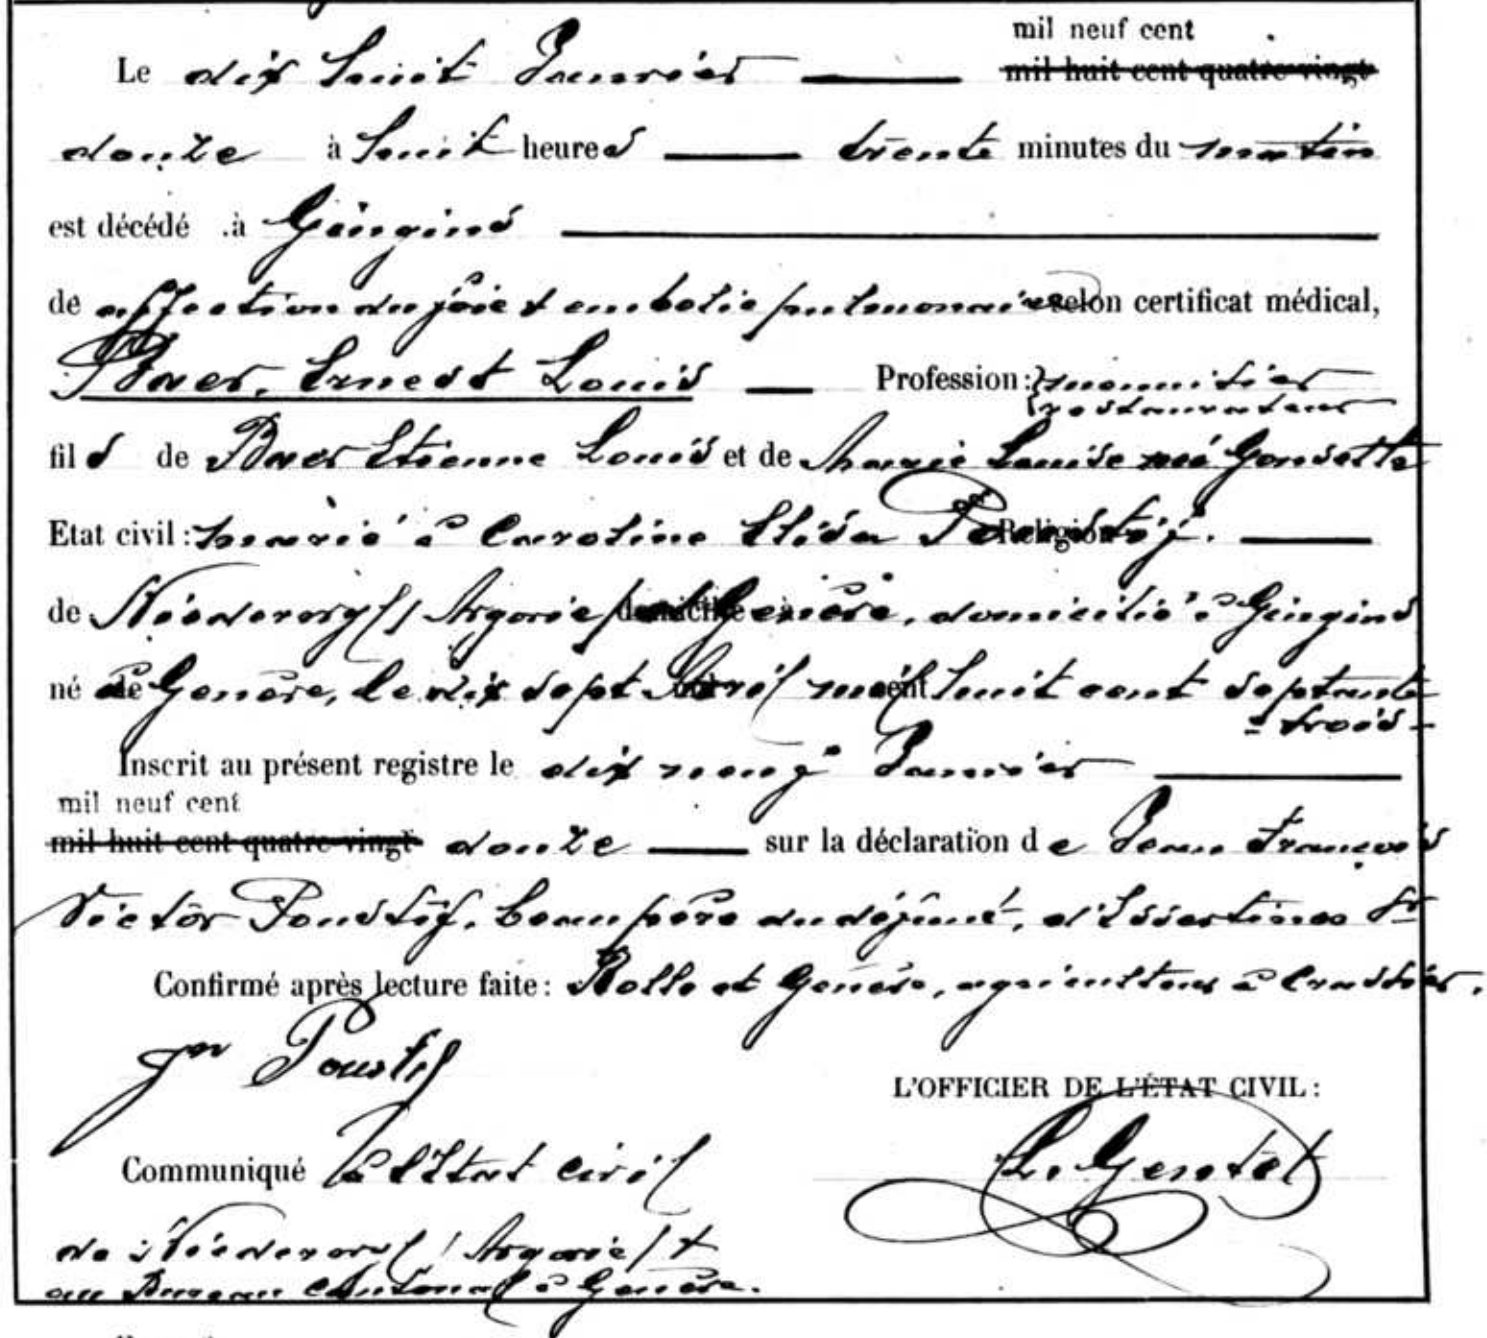 mil neuf cent
Le dix huit Janvier mil huit cent quatre-vingt
douze à huit heures trente minutes du matin
est décédé à Gingins
de affection du foie & embolie pulmonaire selon certificat médical,
Baer, Ernest Louis Profession: menuisier
restaurateur
fils de Baer Etienne Louis et de Marie Louise née Gonsette
Etat civil: marié à Caroline Elisa Poustif. Religion
de Niederwyl (Argovie) & Genève, domicilié à Gingins
né à Genève, le dix sept Avril mil huit cent septante
- trois -
Inscrit au présent registre le dix neuf Janvier
mil neuf cent
mil huit cent quatre-vingt douze sur la déclaration de Jean François
Victor Poustif, beau père du défunt, d'Essertines sr
Confirmé après lecture faite: Rolle et Genève, agriculteur à Crassier.
Jn Poustif
L'OFFICIER DE L'ÉTAT CIVIL:
Communiqué à l'Etat civil
L. Gentet
de Niederwyl (Argovie) &
au Bureau Cantonal à Genève.